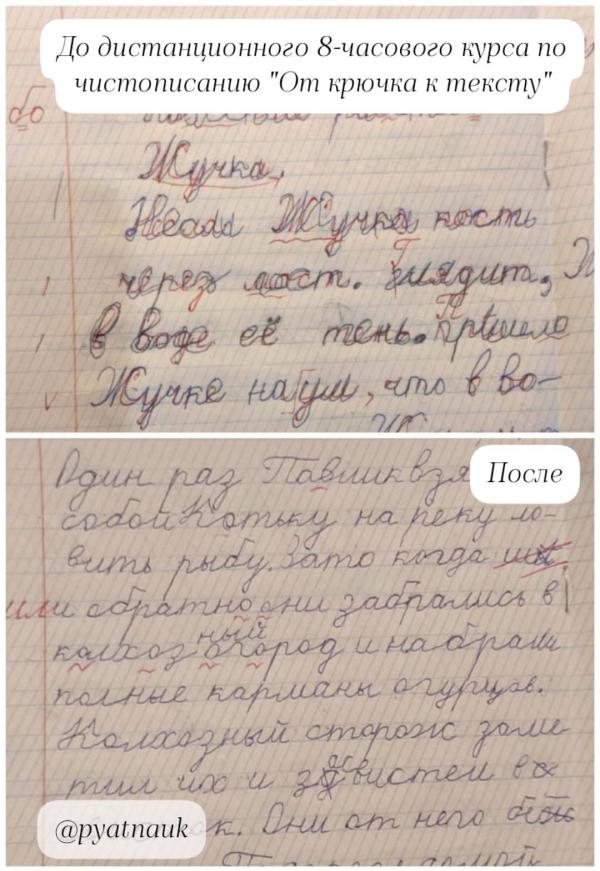 До дистанционного 8-часового курса по
чистописанию "От крючка к тексту"
бо
Жучка.
Несла Жучка кость
через мост. Глядит,
в воде её тень. Пришло
Жучке на ум, что в во-
После
Один раз Павлик взя
собой Котьку на реку ло-
вить рыбу. Зато когда
или обратно они забрались в
колхозный огород и набрали
полные карманы огурцов.
Колхозный сторож заме
тил их и засвистел в
ок. Они от него
@pyatnauk